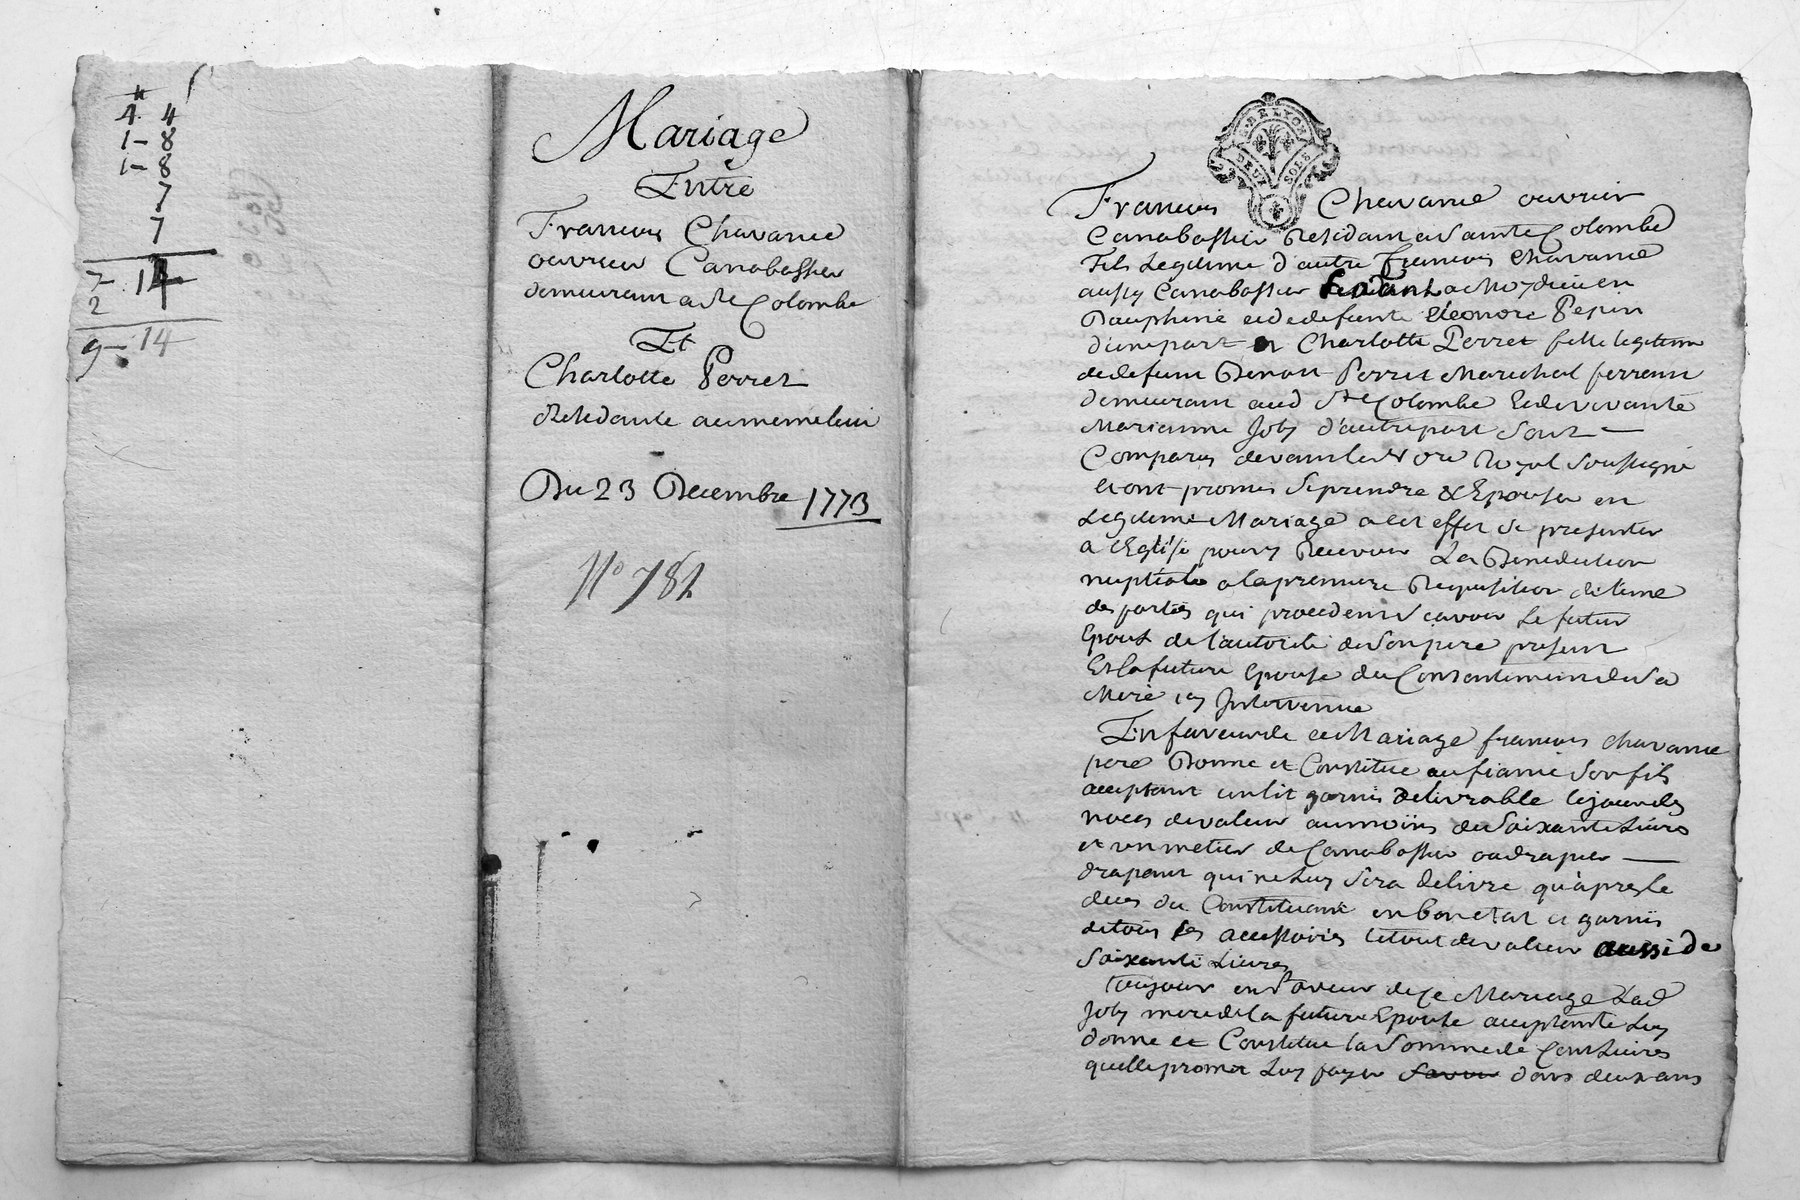 4 4
1- 8
1- 8
7
7
7- 14
2
9- 14
Mariage
Entre
Francois Chavanne
ouvrier Canabassier
demeurant a Ste Colombe
Et
Charlotte Perret
Residante au meme lieu
Du 23 Decembre 1773
No 782
G. DE LYON
DEUX SOLS
Francois Chavanne ouvrier
Canabassier Residant a Sainte Colombe
fils Legitime d'autre francois Chavanne
aussy Canabassier a Moydieu en
Dauphiné et de defunte Eléonore Pepin
d'une part et Charlotte Perret fille legitime
de defunt Benoit Perret Marechal ferrant
demeurant aud Ste Colombe et de vivante
Marianne Joly d'autre part Sont
Comparus devant le Nore Royal Soussigné
et ont promis Se prendre & Epouser en
Legitime Mariage a cet effet Se presenter
a l'Eglise pour y Recevoir La Benediction
nuptiale a la premiere Requisition de l'une
des parties qui procedent Scavoir Le futur
Epoux de l'autorité de Son pere present
Et la future Epouse du Consentement de Sa
Mere icy Intervenue
En faveur de ce Mariage francois Chavanne
pere Donne et Constitue au fiancé Son fils
acceptant un lit garni délivrable le jour des
noces de valeur au moins de Soixante Livres
et un metier de Canabassier ou drapier
drapant qui ne Luy Sera delivré qu'après le
deces du Constituant en bon etat et garnis
de tous ses accessoires le tout de valeur aussi de
Soixante Livres
Toujours en faveur de ce Mariage Lad
Joly mere de la future Epouse acceptante Luy
donne et Constitue la Somme de Cent Livres
quelle promet Luy payer dans deux ans